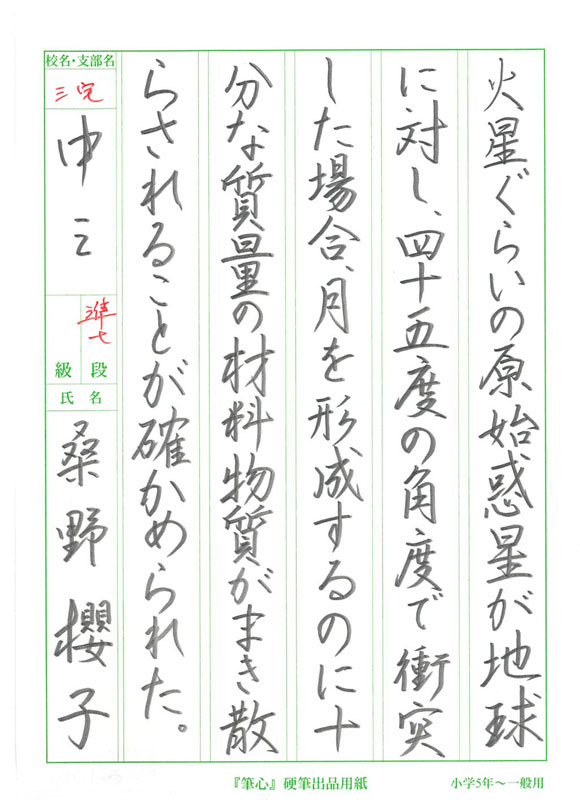 火星ぐらいの原始惑星が地球
に対し、四十五度の角度で衝突
した場合、月を形成するのに十
分な質量の材料物質がまき散
らされることが確かめられた。
校名・支部名
三宅
中三
準七
段
級
氏名
桑野櫻子
『筆心』硬筆出品用紙
小学5年～一般用